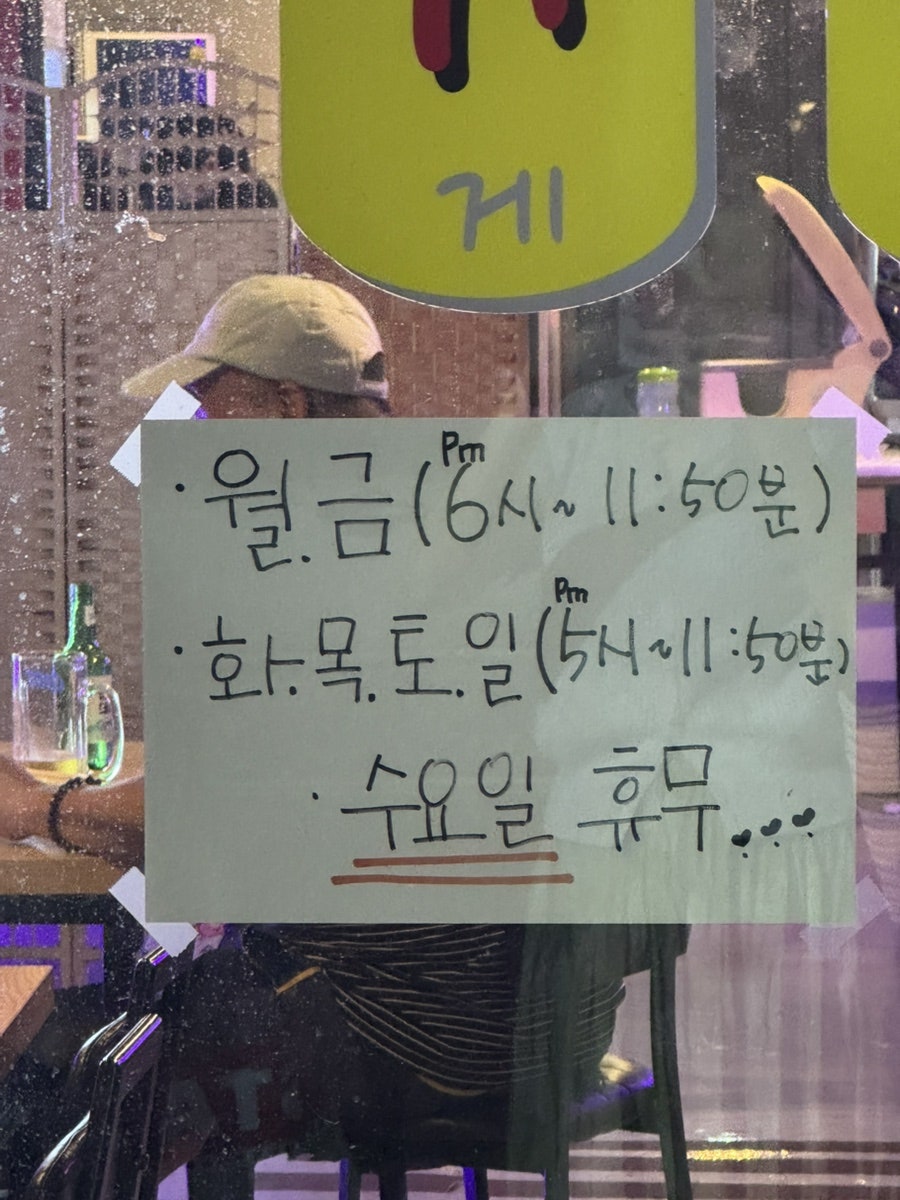 게
· 월.금 (Pm 6시~11:50분)
· 화.목.토.일 (Pm 5시~11:50분)
· 수요일 휴무...